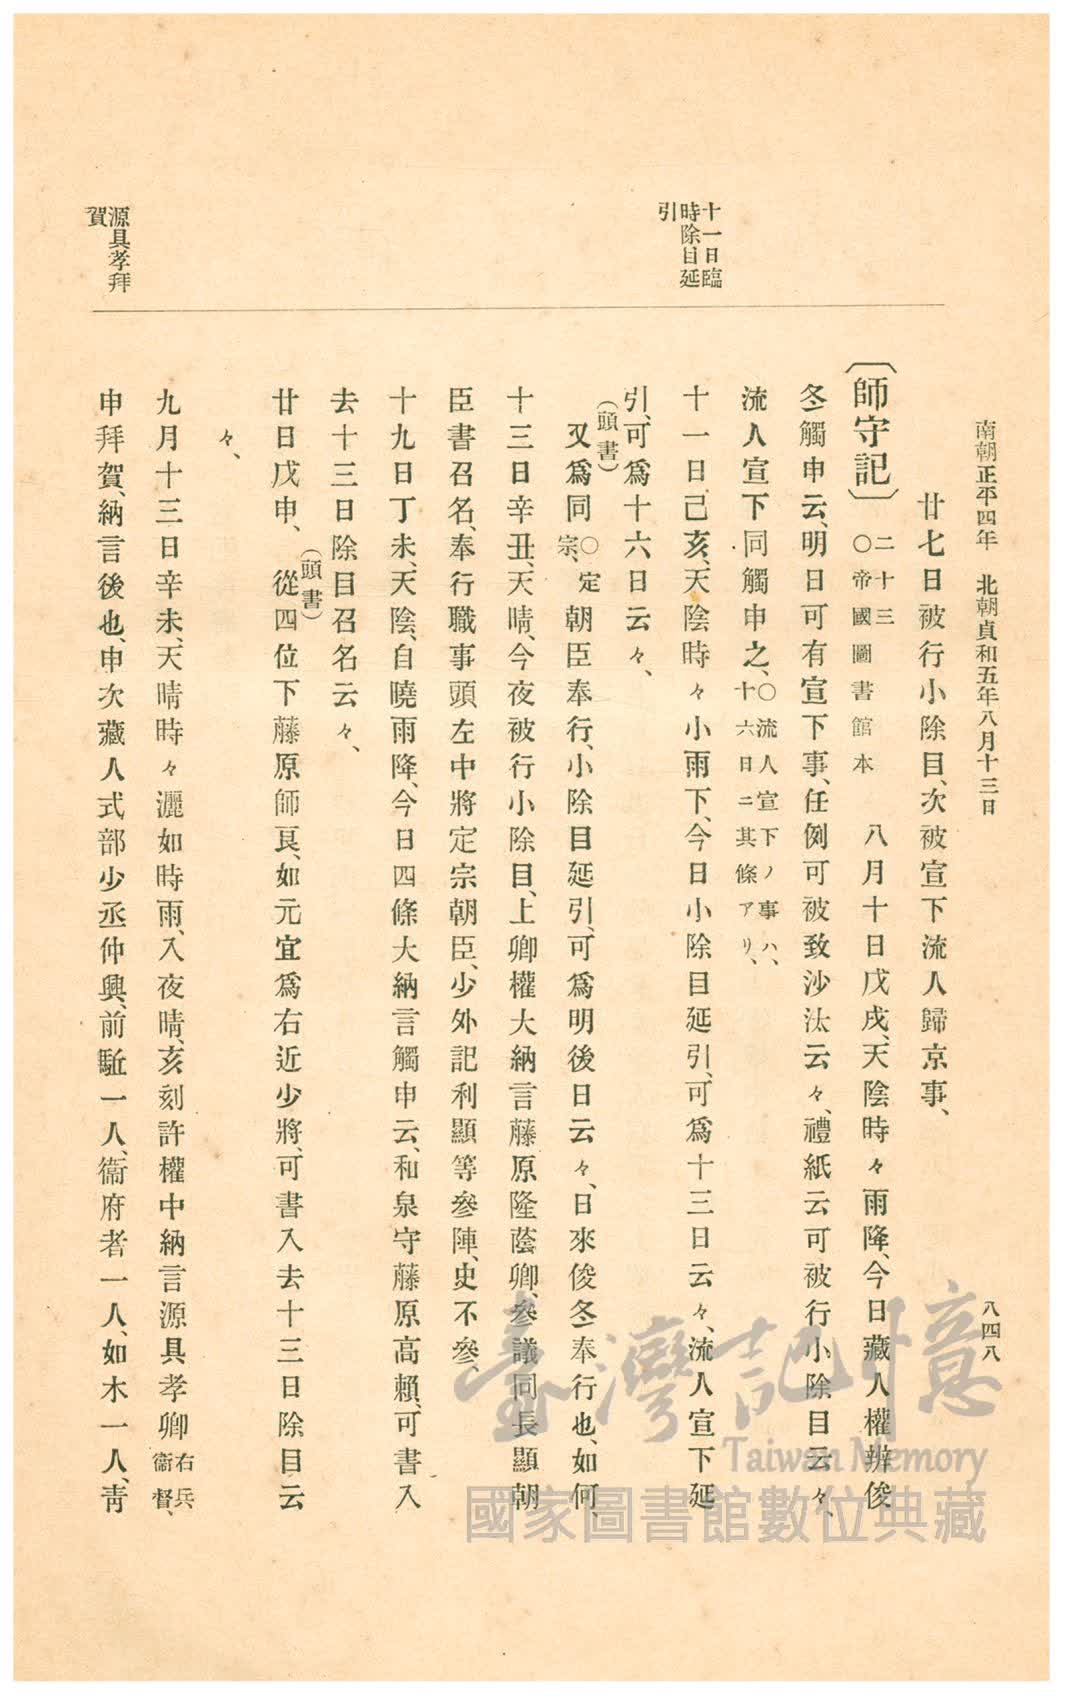 南朝正平四年 北朝貞和五年八月十三日
八四八
廿七日被行小除目、次被宣下流人歸京事、
〔師守記〕 二十三
○帝國圖書館本 八月十日戊戌、天陰時々雨降、今日藏人權辨俊
冬觸申云、明日可有宣下事、任例可被致沙汰云々、禮紙云可被行小除目云々、
流人宣下同觸申之、○流人宣下ノ事ハ、
十六日ニ其條アリ、
十一日臨
時除目延
引
十一日、己亥、天陰時々小雨下、今日小除目延引、可爲十三日云々、流人宣下延
引、可爲十六日云々、
(頭書)
又爲同○定
宗、朝臣奉行、小除目延引、可爲明後日云々、日來俊冬奉行也、如何、
十三日辛丑、天晴、今夜被行小除目、上卿權大納言藤原隆蔭卿、參議同長顯朝
臣書召名、奉行職事頭左中將定宗朝臣、少外記利顯等參陣、史不參、
十九日丁未、天陰、自曉雨降、今日四條大納言觸申云、和泉守藤原高賴、可書入
去十三日除目召名云々、
(頭書)
廿日戊申、 從四位下藤原師艮、如元宜爲右近少將、可書入去十三日除目云
々、
源具孝拜
賀
九月十三日辛未、天晴時々灑如時雨、入夜晴、亥刻許權中納言源具孝卿右兵
衞督、
申拜賀、納言後也、申次藏人式部少丞仲興、前駈一人、衞府者一人、如木一人、靑
臺灣記憶
Taiwan Memory
國家圖書館數位典藏